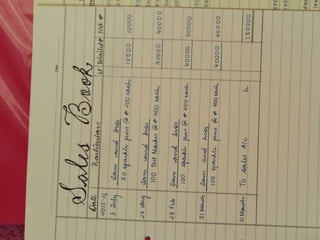 Sales Book
Date Particulars LF Details ₹ Net ₹
2015-16
5 July Sam and bros
50 sparkle pens @ ₹ 200 each 10000 10000
23 Aug Sam and bros
100 Dot Maker @ ₹ 400 each 40000 40000
28 Feb Sam and bros
100 sparkle pens @ ₹ 400 each 40000 40000
31 March Sam and bros
100 sparkle pens @ ₹ 400 each 40000 40000
31 March To Sales A/c 130000